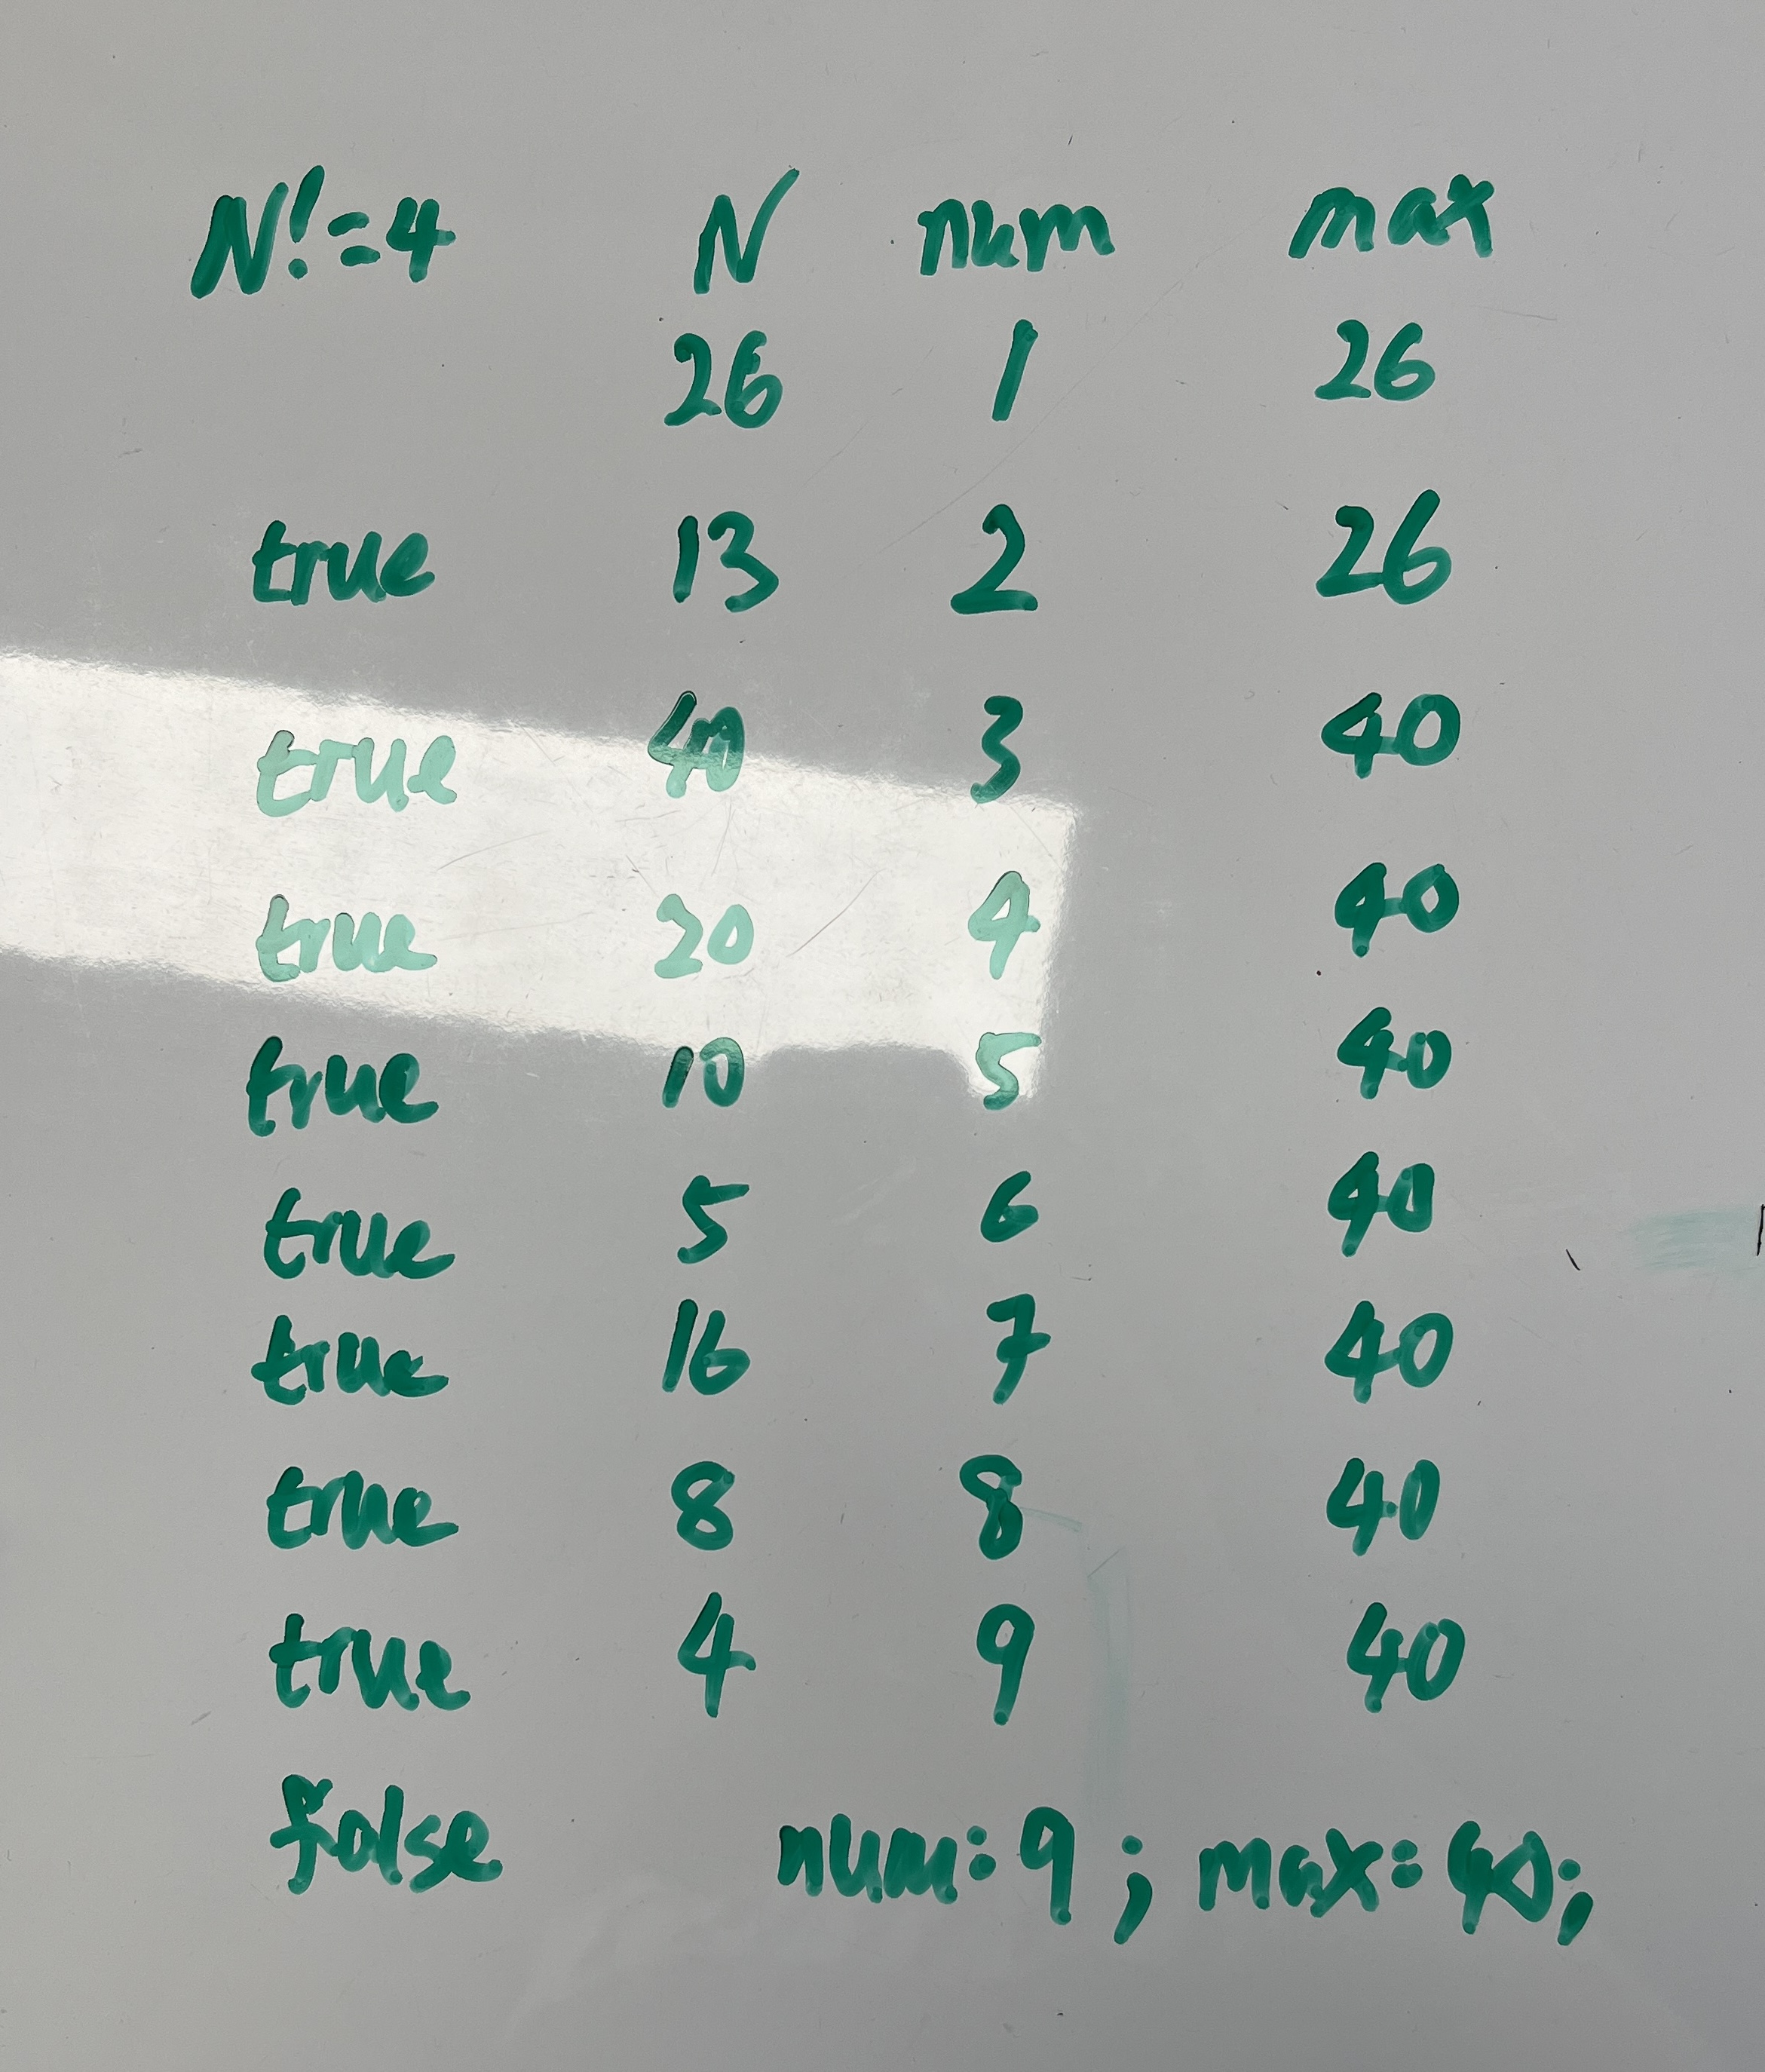 N!=4 N num max
26 1 26
true 13 2 26
true 40 3 40
true 20 4 40
true 10 5 40
true 5 6 40
true 16 7 40
true 8 8 40
true 4 9 40
false num:9; max:40;